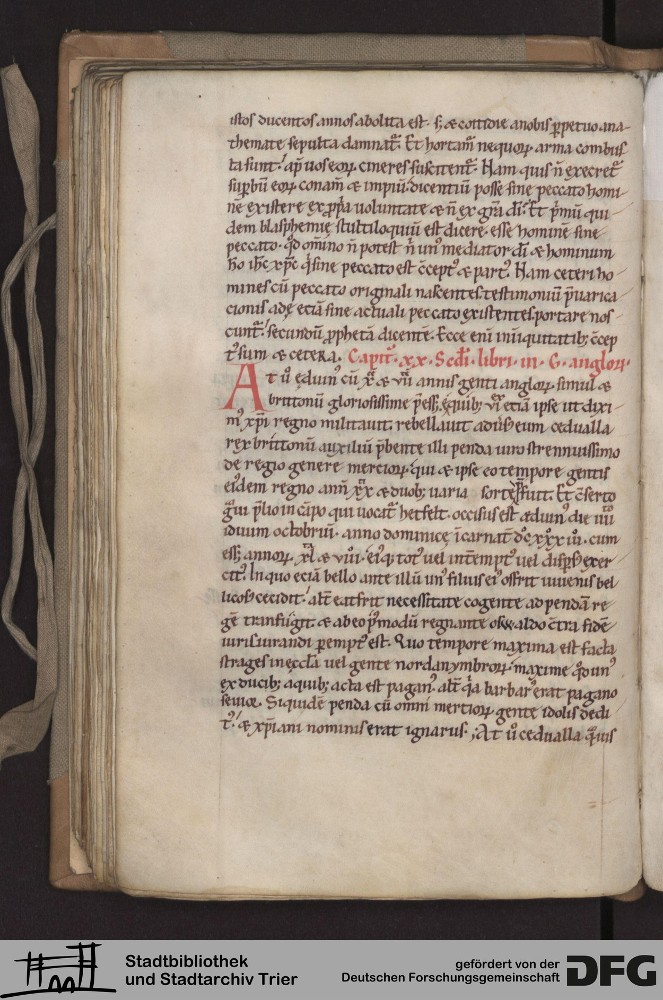 istos ducentos annos abolita est. s; & cottidie a nobis ppetuo ana-
themate sepulta damnat̃. Et hortam̃ ne quorꝝ arma combus
ta sunt. ap̃ uos eorꝝ cineres suscitent̃. Nam quis ñ execret̃
supbũ eorꝝ conam̃ & impiũ. dicentiũ posse sine peccato homi
nẽ existere ex ppa uoluntate & ñ ex gr̃a dĩ. Et p̃mũ qui-
dem blasphemię stultiloquiũ est dicere. esse hominẽ sine
peccato. qd om̃ino ñ potest ñ un' mediator dĩ & hominum
hõ ihc̃ xpc̃ q sine peccato est c̃cept' & part'. Nam ceteri ho-
mines cũ peccato originali nascentes. testimoniũ p̃uarica
cionis adę eciã sine actuali peccato existentes. portare nos-
cunt̃. secundũ pphetã dicentẽ. Ecce enĩ in iniquitatib; c̃cep
t' sum & cetera. Capit̃. xx. Scdĩ. libri. in. G. anglorꝝ.
At ů eduin' cũ x̃ & vii annis genti anglorꝝ simul &
brittonũ gloriosissime p̃ess; equib; vi eciã ipse ut dixi-
m' xp̃i regno militauit. rebellauit aduers' eum cedualla
rex brittonũ auxiliũ p̃bente illi penda uiro strennuissimo
de regio genere merciorꝝ. qui & ipse eo tempore gentis
ei'dem regno ann̄ xx & duob; uaria sorte p̃fuit. Et c̃serto
g̃ui p̃lio in cãpo qui uocat̃ hetfelt. occisus est æduin' die iiii
iduum octobriũ. anno dominicę ĩcarnat̃ dc xxxiii. cum
ess; annorꝝ xl & viii. ei'q; tot' uel int̃empt' uel dispers' exer-
cit'. In quo eciã bello ante illũ un' filius ei' osfrit iuuenis bel
licos' cecidit. alt̃ eatfrit necessitate cogente ad pendã re
gẽ transfugit. & ab eo p'modũ regnante osualdo c̃tra fidẽ
iurisiurandi perempt' est. Quo tempore maxima est facta
strages in ęccl̃a uel gente nordanymbrorꝝ. maxime qd un'
ex ducib; a quib; acta est pagan'. alt̃ q̃a barbar' erat pagano
seuior. Siquidẽ penda cũ omni merciorꝝ gente idolis dedi
t'. & xp̃iani nominis erat ignarus. ;At ů cedualla q̃uis
Stadtbibliothek
und Stadtarchiv Trier
gefördert von der
Deutschen Forschungsgemeinschaft
DFG